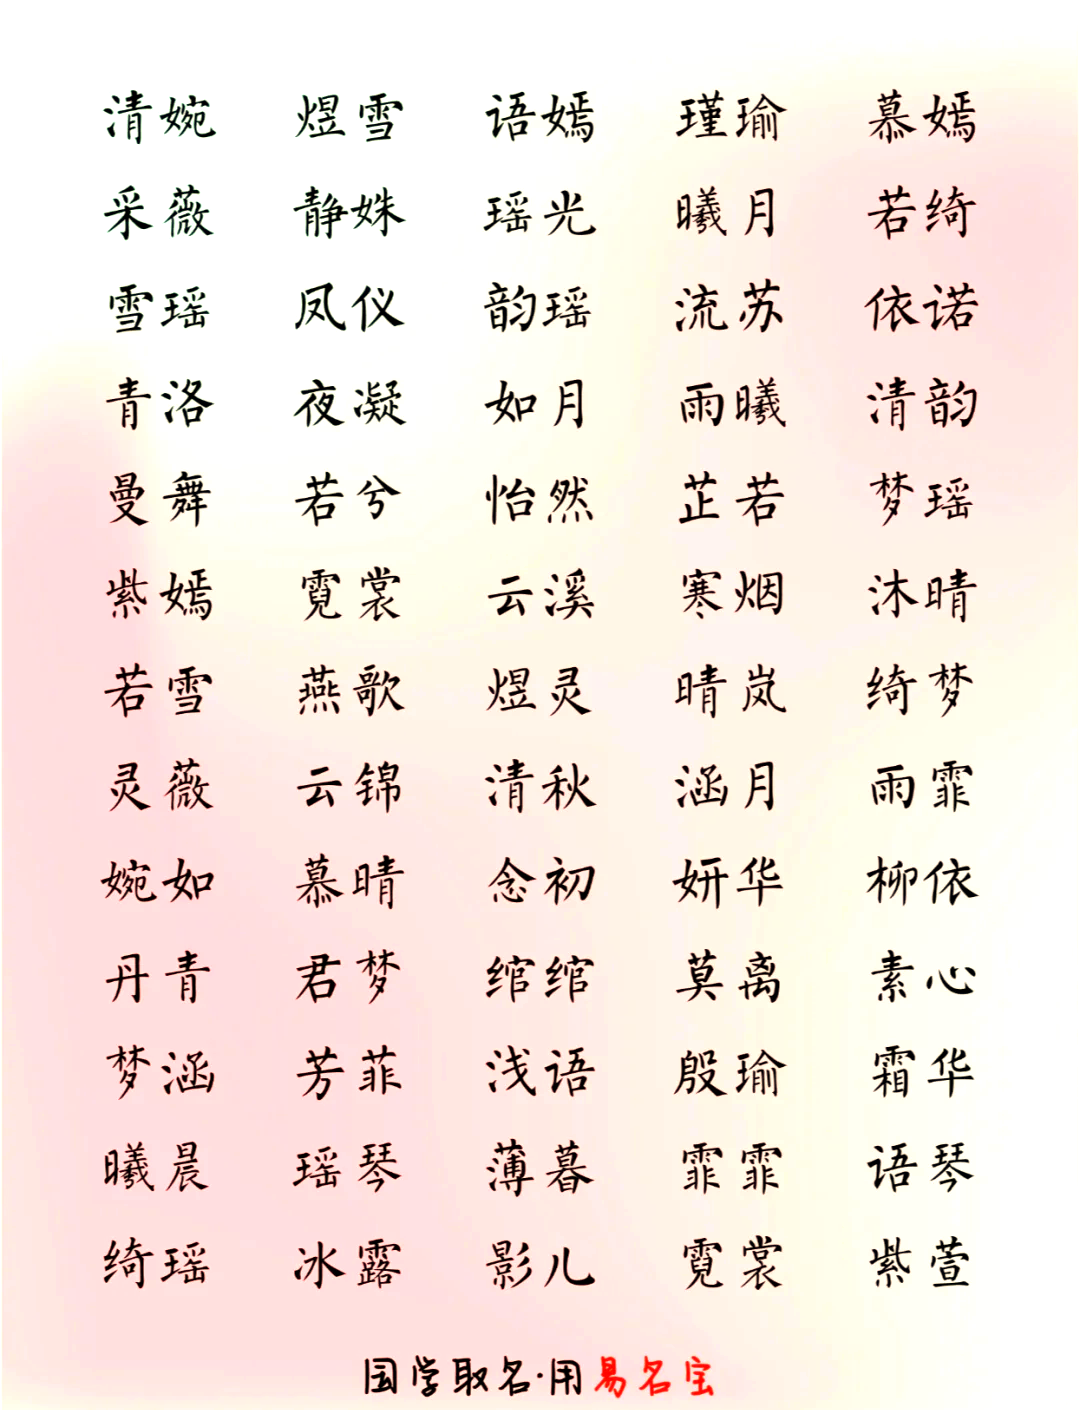 清婉 煜雪 语嫣 瑾瑜 慕嫣
采薇 静姝 瑶光 曦月 若绮
雪瑶 凤仪 韵瑶 流苏 依诺
青洛 夜凝 如月 雨曦 清韵
曼舞 若兮 怡然 芷若 梦瑶
紫嫣 霓裳 云溪 寒烟 沐晴
若雪 燕歌 煜灵 晴岚 绮梦
灵薇 云锦 清秋 涵月 雨霏
婉如 慕晴 念初 妍华 柳依
丹青 君梦 绾绾 莫离 素心
梦涵 芳菲 浅语 殷瑜 霜华
曦晨 瑶琴 薄暮 霏霏 语琴
绮瑶 冰露 影儿 霓裳 紫萱
国学取名·用易名宝